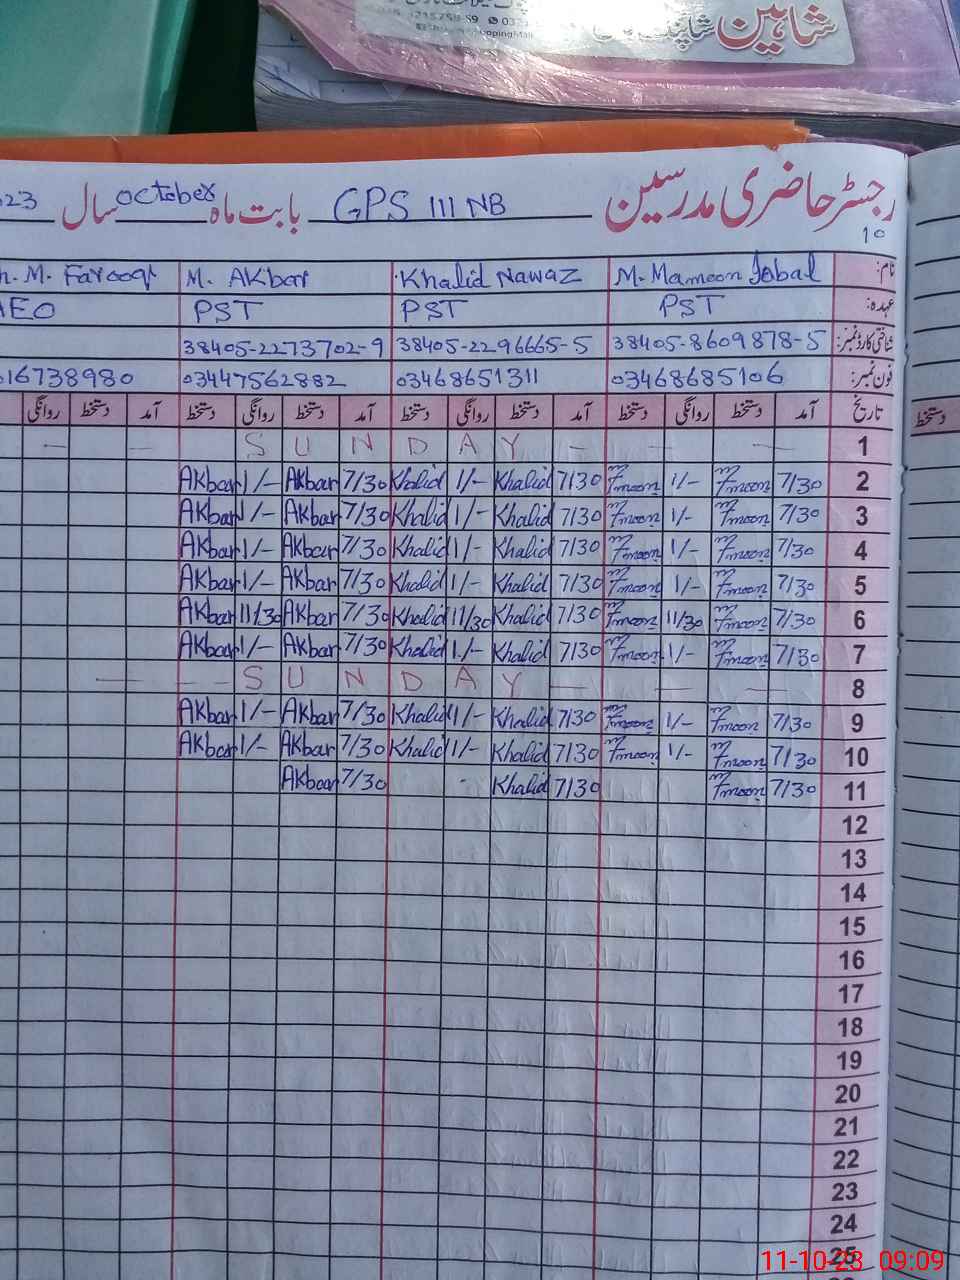 شاہین شاپنگ
رجسٹر حاضری مدرسین GPS 111 NB بابت ماہ October سال 023
10
نام: M. Mamoon Iqbal Khalid Nawaz M. AKbar h. M. Farooq
عہدہ: PST PST PST AEO
شناختی کارڈ نمبر: 38405-8609878-5 38405-2296665-5 38405-2273702-9
فون نمبر: 03468685106 03468651311 03447562882 016738980
تاریخ آمد دستخط روانگی دستخط آمد دستخط روانگی دستخط آمد دستخط روانگی دستخط آمد دستخط روانگی
دستخط
1 — — S U N D A Y — — — —
2 7/30 1/- 7/30 Khalid 1/- Khalid 7/30 AKbar 1/- AKbar
3 7/30 1/- 7/30 Khalid 1/- Khalid 7/30 AKbar 1/- AKbar
4 7/30 1/- 7/30 Khalid 1/- Khalid 7/30 AKbar 1/- AKbar
5 7/30 1/- 7/30 Khalid 1/- Khalid 7/30 AKbar 1/- AKbar
6 7/30 11/30 7/30 Khalid 11/30 Khalid 7/30 AKbar 11/30 AKbar
7 7/30 1/- 7/30 Khalid 1/- Khalid 7/30 AKbar 1/- AKbar
8 — — S U N D A Y — — —
9 7/30 1/- 7/30 Khalid 1/- Khalid 7/30 AKbar 1/- AKbar
10 7/30 1/- 7/30 Khalid 1/- Khalid 7/30 AKbar 1/- AKbar
11 7/30 7/30 Khalid 7/30 AKbar
12
13
14
15
16
17
18
19
20
21
22
23
24
25
11-10-23 09:09